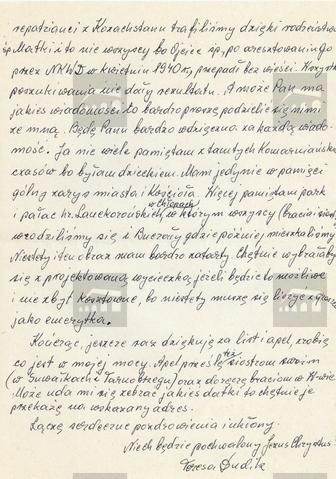 repatrianci z Kazachstanu trafiliśmy dzięki rodzeństwu
śp Matki i to nie wszyscy bo Ojciec śp, po aresztowaniu go
przez NKWD w kwietniu 1940r, przepadł bez wieści. Wszystkie
poszukiwania nie dały rezultatu. A może Pan ma
jakieś wiadomości to bardzo proszę podzielić się nimi
ze mną. Będę Panu bardzo wdzięczna za każdą wiado-
mość. Ja nie wiele pamiętam z tamtych Komarniańskich
czasów bo byłam dzieckiem. Mam jedynie w pamięci
gólny zarys miasta i Kościoła. Więcej pamiętam park
i pałac hr. Lanckorońskich w Chłopach, w którym wszyscy (bracia i siostry)
urodziliśmy się, i Buczały gdzie później mieszkaliśmy
Niestety i tu obraz mam bardzo zatarty. Chętnie wybrałabym
się z projektowaną wycieczką jeżeli będzie to możliwe
i nie zbyt kosztowne, bo niestety muszę się liczyć z groszem
jako emerytka.
Kończąc, jeszcze raz dziękuję za list i apel, zrobię
co jest w mojej mocy. Apel prześlę też siostrom swoim
(w Suwałkach i Tarnobrzegu) oraz doręczę braciom w W-wie
Może uda mi się zebrać jakieś datki to chętnie je
przekażę na wskazany adres.
Łączę serdeczne pozdrowienia i ukłony.
Niech będzie pochwalony Jezus Chrystus!
Teresa Dudik